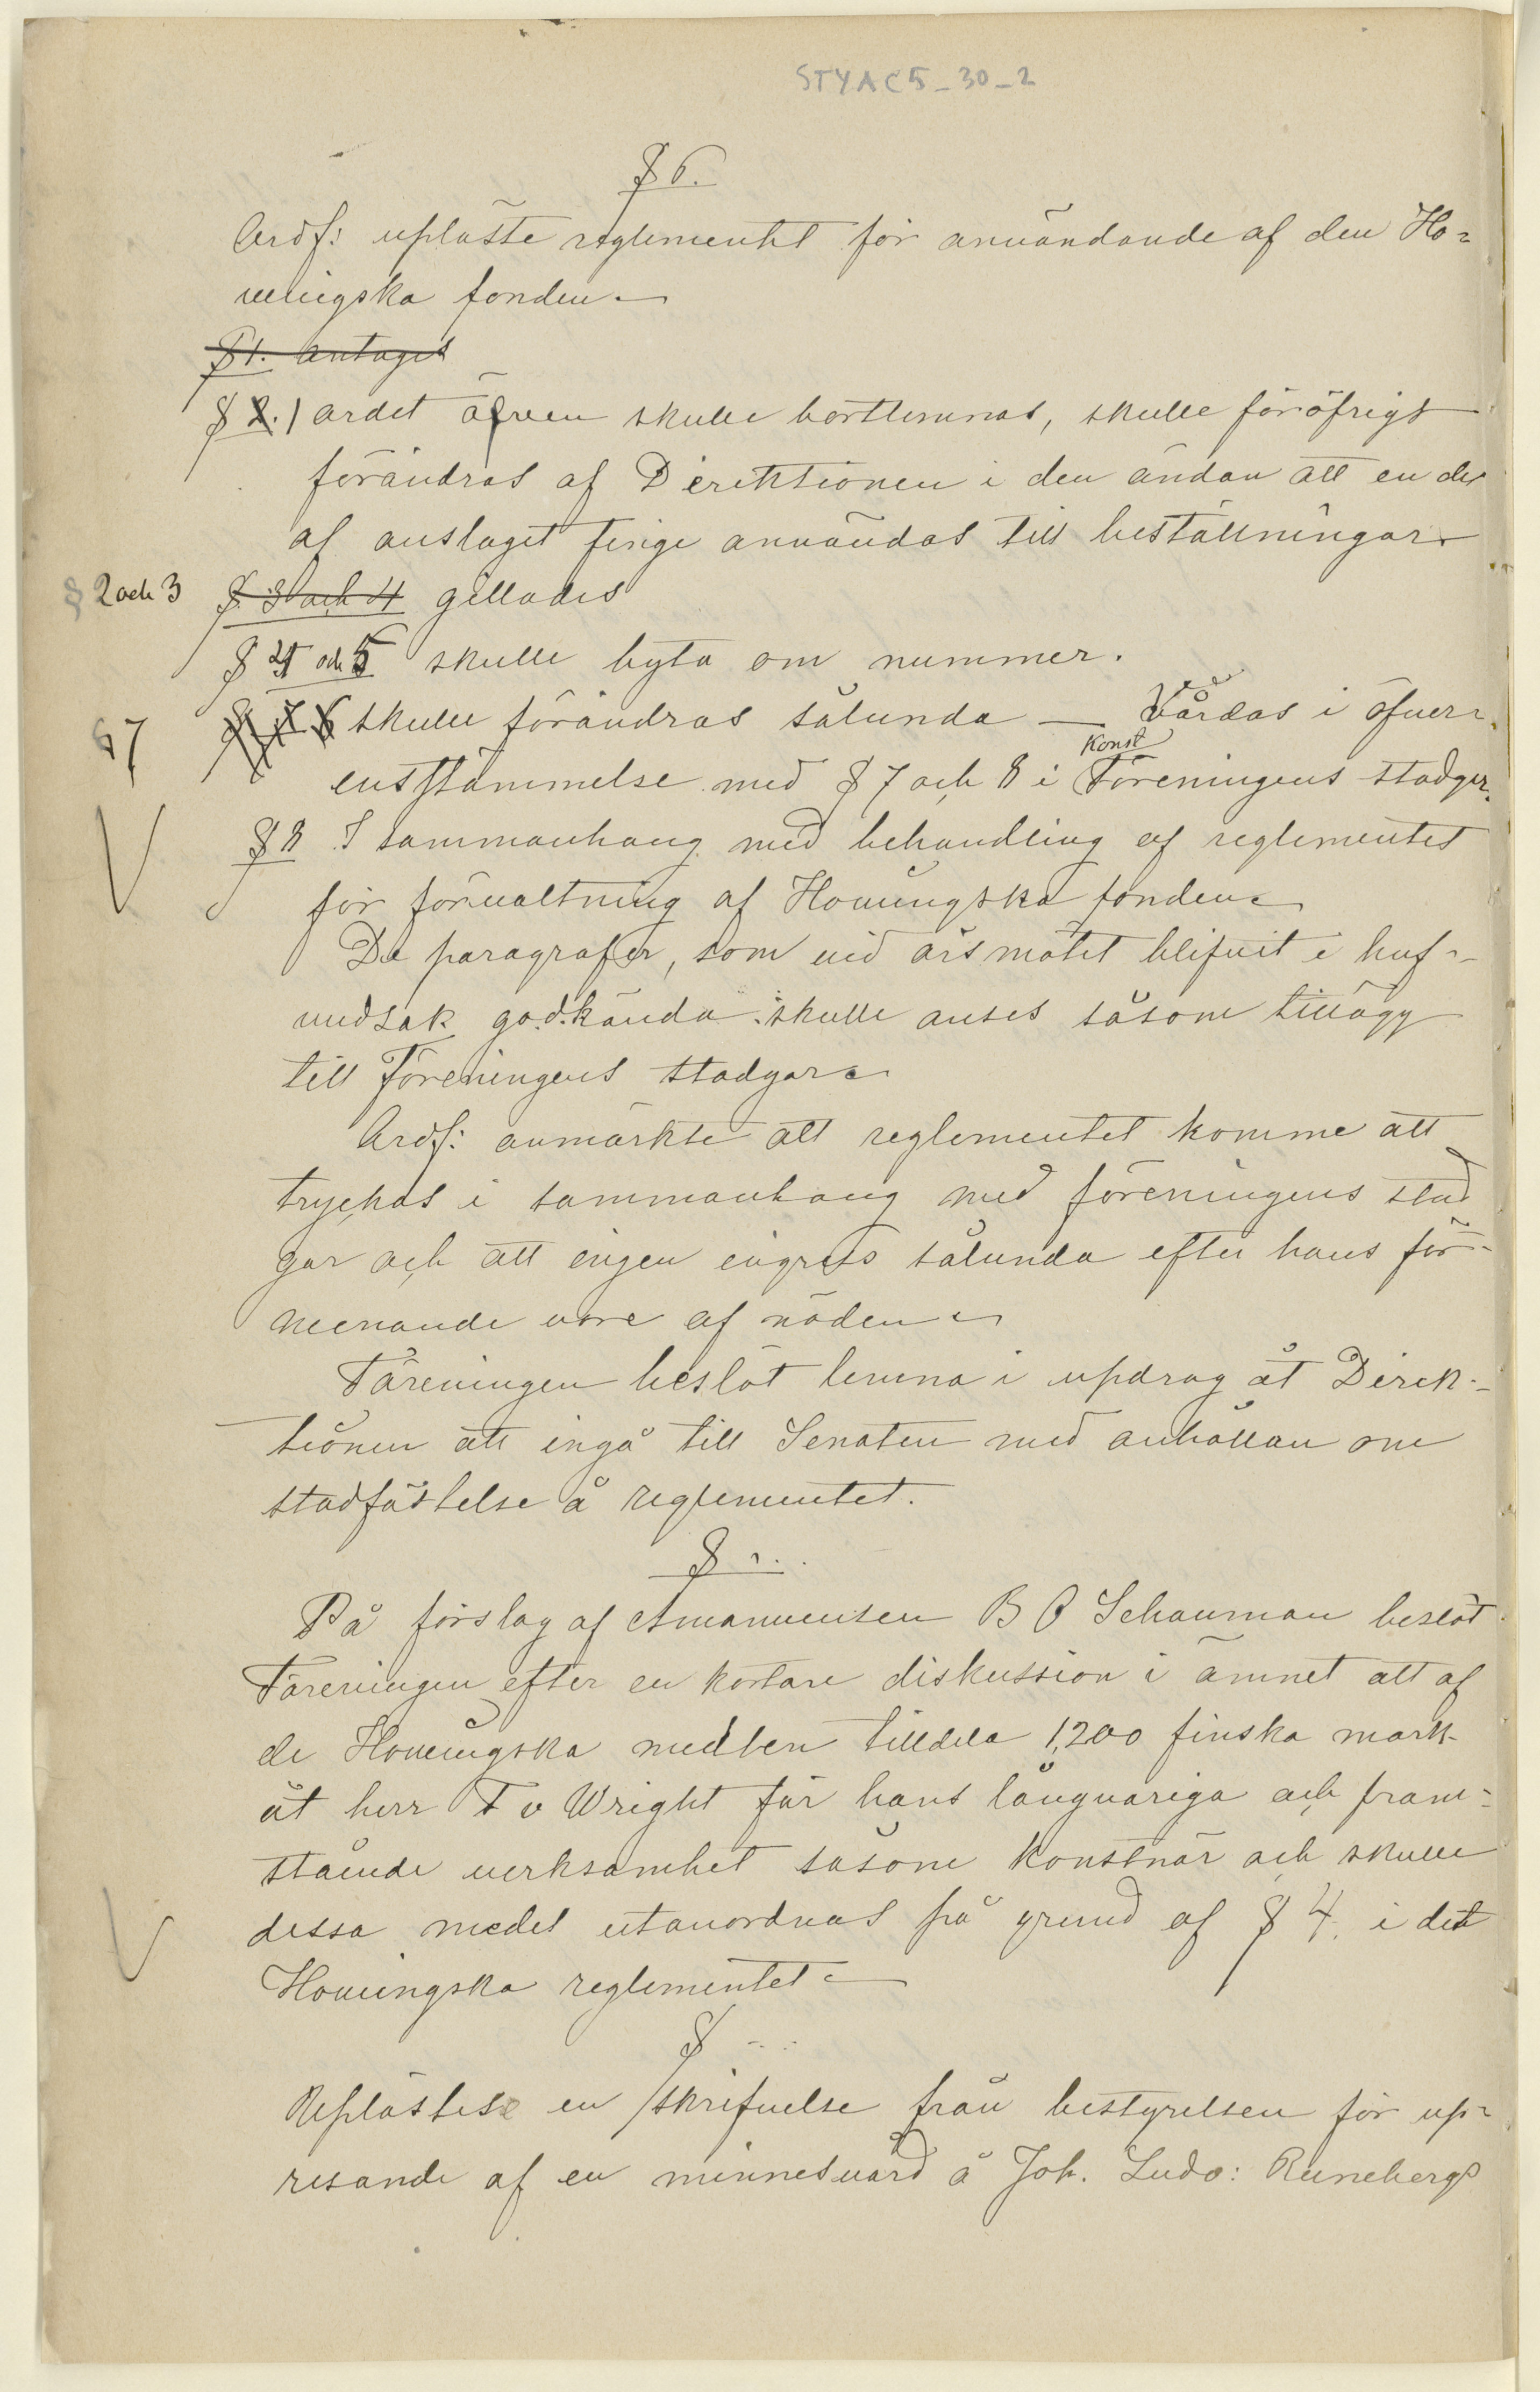 STYAC5_30_2
§ 6.
Ordf: upläste reglementet för användande af den Ho-
vingska fonden.
§ 1. antaget
§ 2. 1 ordet äfven skulle bortlemnas, skulle föröfrigt
förändras af Direktionen i den ändan att en del
af anslaget finge användas till beställningar.
§ 2 och 3 § 3 och 4 gillades
§ 4 och 5 skulle byta om nummer.
§ 7 skulle förändras sålunda — Vårdas i öfver-
Konst
ensstämmelse med § 7 och 8 i Föreningens stadgar.
§ 8 I sammanhang med behandling af reglementet
för förvaltning af Hovingska fonden
De paragrafer, som vid årsmötet blifvit i huf-
vudsak godkända skulle anses såsom tillägg
till Föreningens stadgar
Ordf: anmärkte att reglementet komme att
tryckas i sammanhang med föreningens stad
gar och att ingen ingress sålunda efter hans för-
menande vore af nöden
Föreningen beslöt lemna i updrag åt Direk-
tionen att ingå till Senaten med anhållan om
stadfästelse å reglementet.
§
På förslag af Amanuensen B O Schauman beslöt
Föreningen efter en kortare diskussion i ämnet att af
de Hovingska medlen tilldela 1,200 finska mark
åt herr F v Wright för hans långvariga och fram-
stående verksamhet såsom konstnär och skulle
dessa medel utanordnas på grund af § 4. i det
Hovingska reglementet
§
Uplästes en skrifvelse från bestyrelsen för up-
resande af en minnesvård å Joh. Ludv: Runebergs